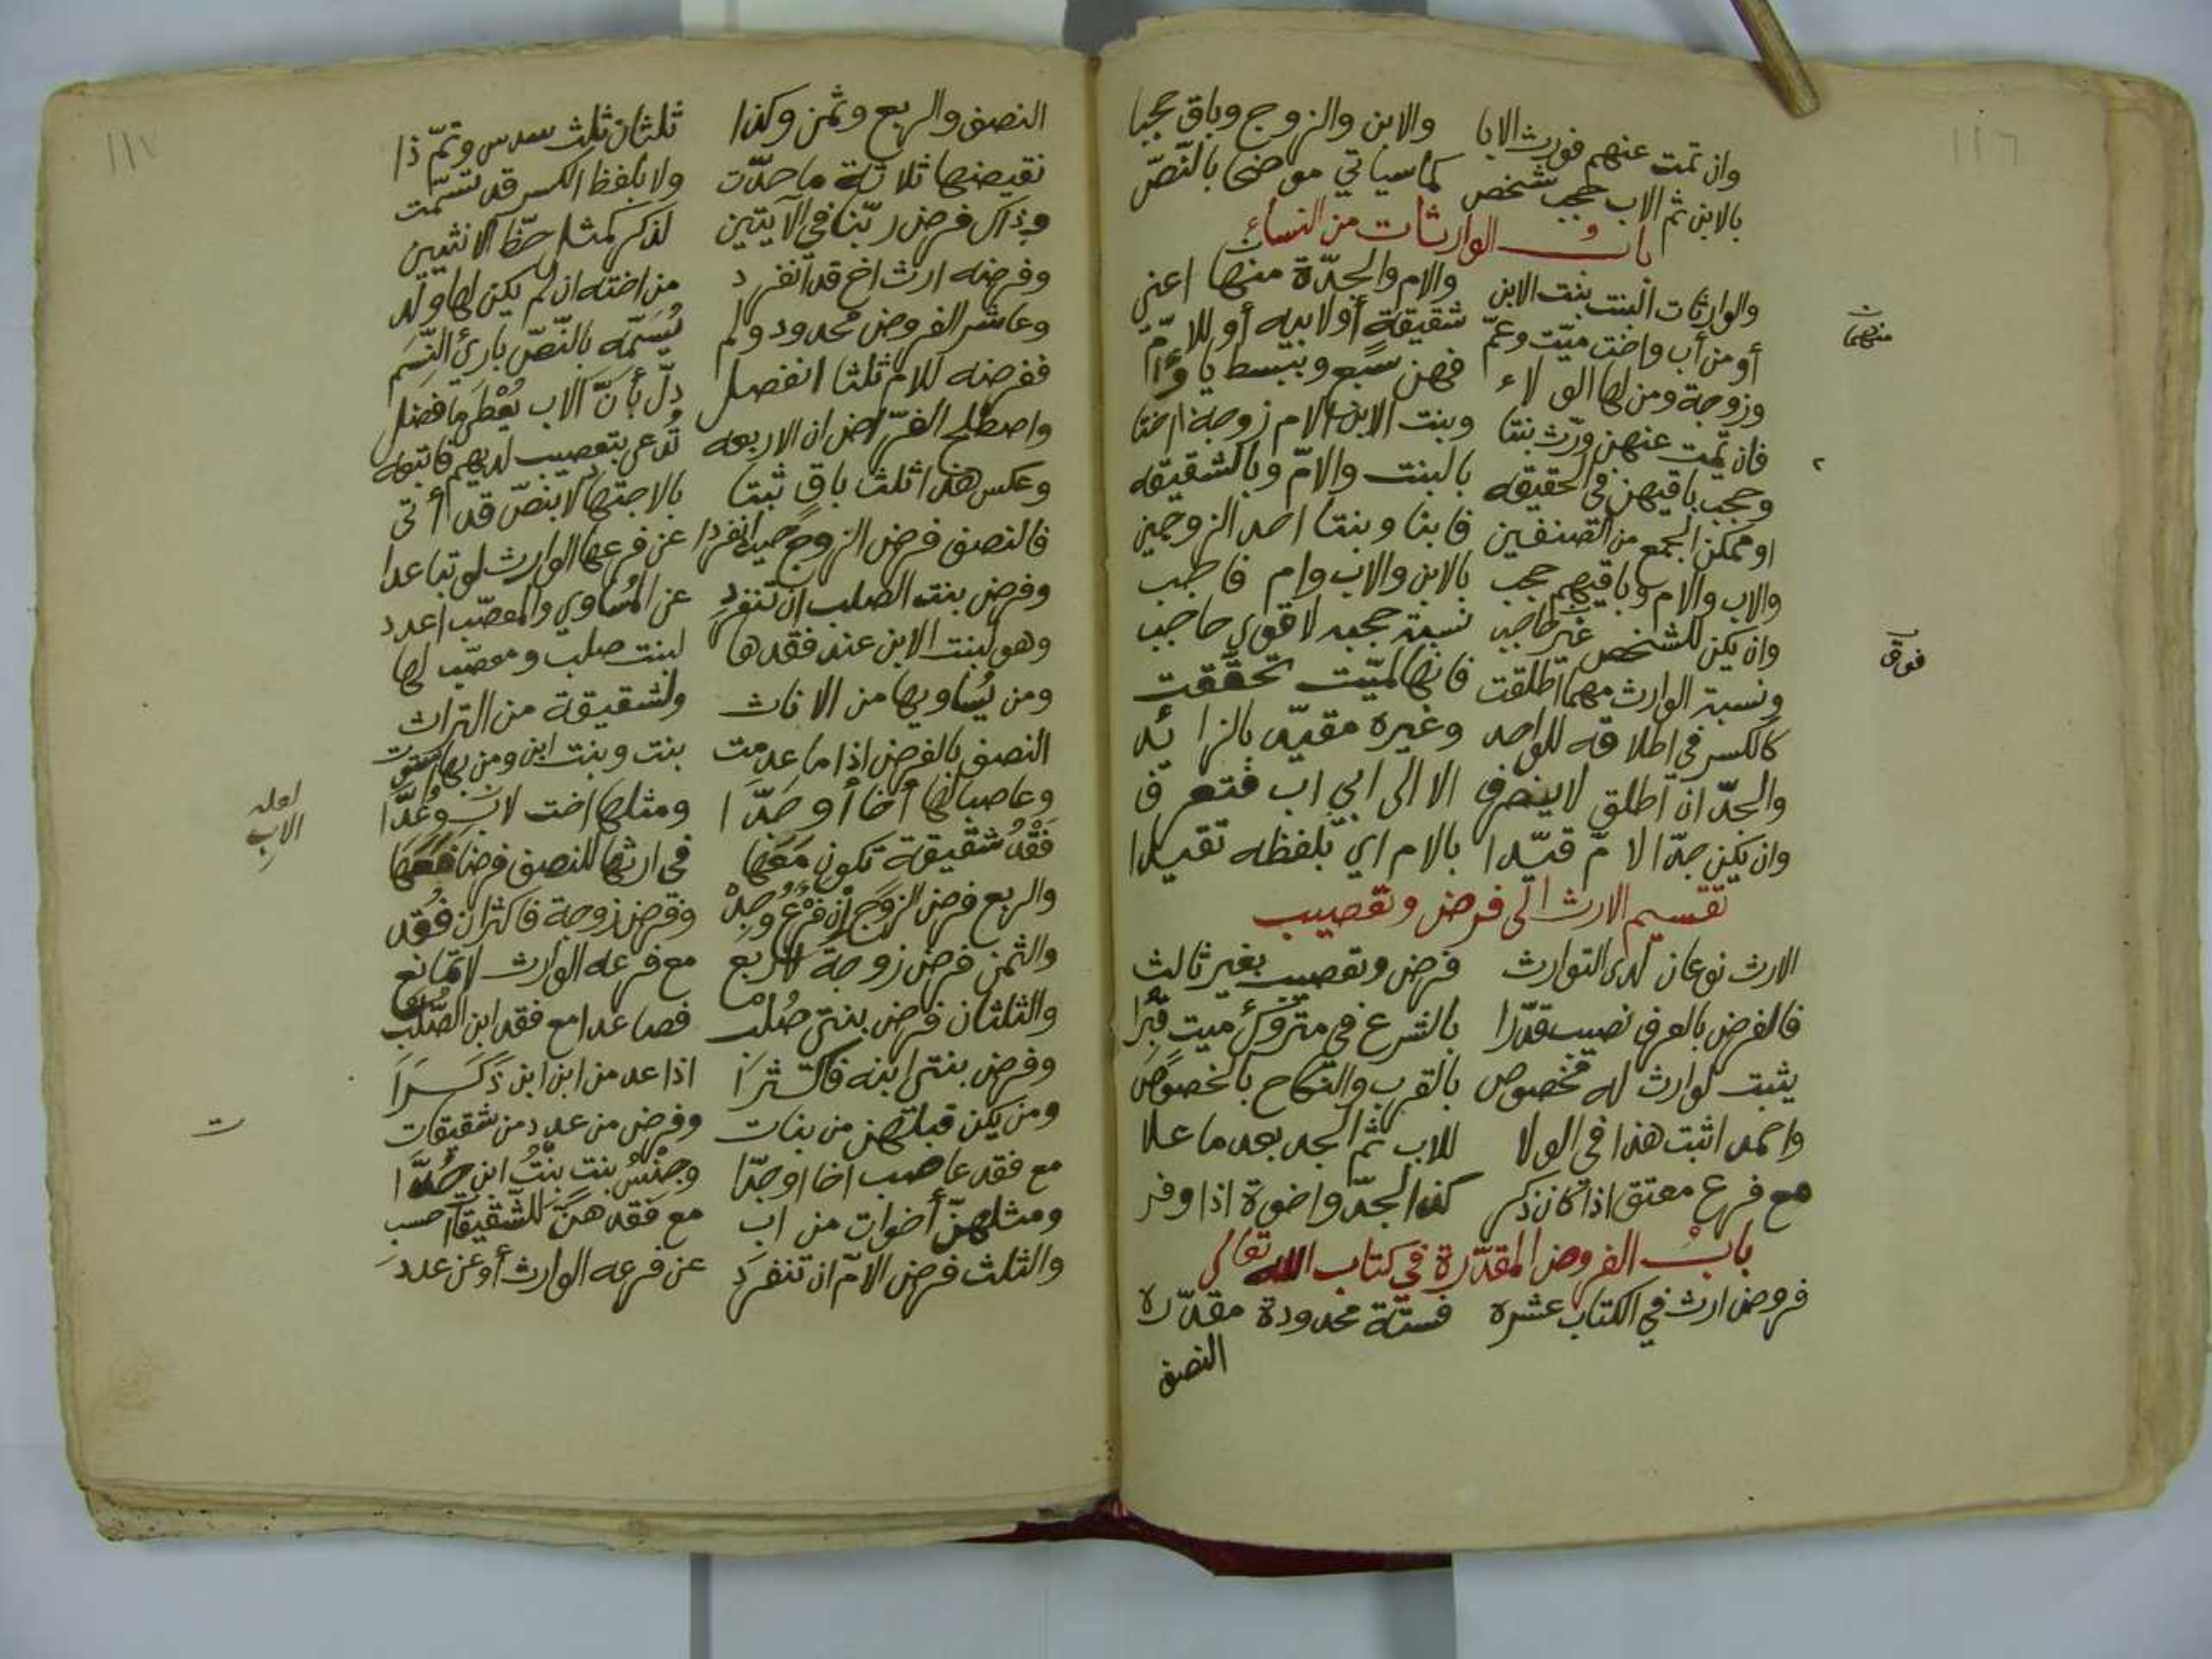 ١١٦
وان تمت عنهم فورث الابا والابن والزوج وباق حجبا
بالابن ثم الاب حجب شخص كما سياتي موضحا بالنّصّ
باب الوارثات من النساء
والوارثات البنت بنت الابن والام والجدّة منها اعني
أو من أب واخت ميّت وعمّ شقيقة أو لابيه أو للامّ
وزوجة ومن لها الولاء فهن سبع وببسط يا
فان تمت عنهن ورّث بنتا وبنت الابن الام زوجة اختا
وحجب باقيهن في الحقيقه بالبنت والامّ وبالشقيقه
او ممكن الجمع من الصنفين فابنا وبنتا احد الزوجين
والاب والام وباقيهم حجب بالابن والاب وام فاطب
وان يكن للشخص غير حاجب نسبة حجبه لاقوى حاجب
ونسبة الوارث مهما اطلقت فانها لميّت تحقّقت
كالكسر في اطلاقه للواحد وغيره مقيّد بالزائد
والجدّ ان اطلق لاينصرف الا الى ابي اب فتعرف
وان يكن جدّا لامّ قيّدا بالام اي بلفظه تقيدا
تقسيم الارث الى فرض وتعصيب
الارث نوعان لدى التوارث فرض وتعصيب بغير ثالث
فالفرض بالعرف نصيب قدّرا بالشرع في متروك ميت قبرا
يثبت لوارث له مخصوص بالقرب والنكاح بالخصوص
واحمد اثبت هذا في الولا للاب ثم الجد بعد ما علا
مع فرع معتق اذا كان ذكر كذا الجدّ واخوة اذا وفر
باب الفروض المقدّرة في كتاب الله تعالى
فروض ارث في الكتاب عشره فستّة محدودة مقدّره
النصف
منهما
فوق
١١٧
النصف والربع وثمن وكذا ثلثان ثلث سدس وتمّ ذا
نقيضها ثلاثة ما حدّت ولا بلفظ الكسر قد تسمّت
وذاك فرض ربّنا في الآيتين لذكر كمثل حظّ الانثيين
وفرضه ارث اخ قد انفرد من اخته ان لم يكن لها ولد
وعاشر الفروض محدود ولم يُسَمّه بالنّصّ بارئ النّسَم
ففرضه للام ثلثا انفصل دلّ بأنّ الاب يُعْطَى ما فضل
واصطلح الفرّاض ان الاربعه تُدعى بتعصيب لديهم فاتبعه
وعكس هذا ثلث باق ثبتا بالاجتهاد لا بنصّ قد أتى
فالنصف فرض الزوج حيث انفردا عن فرعها الوارث لو تباعدا
وفرض بنت الصلب ان تنفرد عن المُساوي والمعصّب اعدد
وهو لبنت الابن عند فقدها لبنت صلب ومعصّب لها
ومن يُساويها من الاناث ولشقيقة من التراث
النصف بالفرض اذا ما عدمت بنت وبنت ابن ومن بها استوت
وعاصبا لها أخا أو جَدّا ومثلها اخت لاب وعُدّا
فَقْدُ شقيقة تكون مَعَها في ارثها للنصف فرضا
والربع فرض الزوج ان فَرْعُ وُجِدْ وفرض زوجة فاكثر ان فُقد
والثمن فرض زوجة لاربع مع فرعه الوارث لا تمانع
والثلثان فرض بنتي صُلْب فصاعدا مع فقد ابن الصّلب
وفرض بنتي ابنه فاكثرا اذا عد من ابن ابن ذكرا
ومن يكن قبلهن من بنات وفرض من عدد من شقيقات
مع فقد عاصب اخا او جدّا وجِنْسُ بنت بنتُ ابن عُدّا
ومثلهنّ أخوات من اب مع فقد هنّ للشّقيقات حسب
والثلث فرض الامّ ان تنفرد عن فرعه الوارث أو عن عدد
لعله
الاب
ت